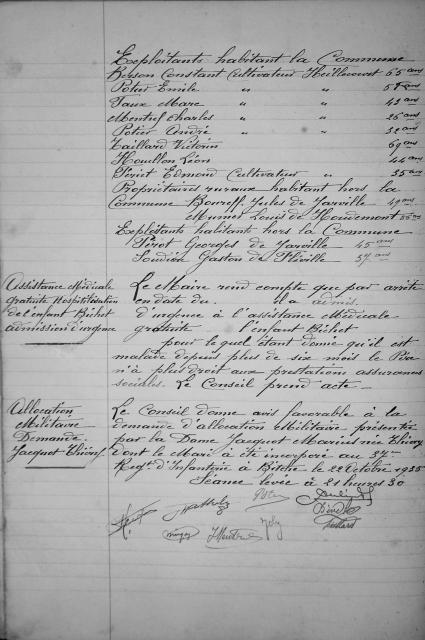 Exploitants habitant la Commune
Berson Constant Cultivateur Heillecourt 65 ans
Potier Emile " " ans
Faux Marc " " 42 ans
Montref Charles " " 25 ans
Potier André " " ans
Taillard Victorin 69 ans
Houillon Léon 44 ans
Férist Edmond Cultivateur " 35 ans
Propriétaires ruraux habitant hors la
Commune Boureff Jules de Jarville 49 ans
Munier Louis de Houdemont ans
Exploitants habitants hors la Commune
Pérot Georges de Jarville 45 ans
Gaston de Fléville 57 ans
Assistance Médicale
gratuite Hospitalisation
de l'enfant Bichet
admission d'urgence
Le Maire rend compte que par arrêté
en date du . il a admis.
d'urgence à l'assistance Médicale
gratuite l'enfant Bichet
pour lequel étant donné qu'il est
malade depuis plus de six mois le Père
n'a plus droit aux prestations assurances
sociales. Le Conseil prend acte -
Allocation
Militaire
Demande
Jacquot Thirion
Le Conseil donne avis favorable à la
demande d'allocation Militaire présentée
par la Dame Jacquot Marius née
dont le Mari a été incorporé au 37me
Régt d'Infanterie à Bitche le 22 Octobre 1935
Séance levée à 21 heures 30